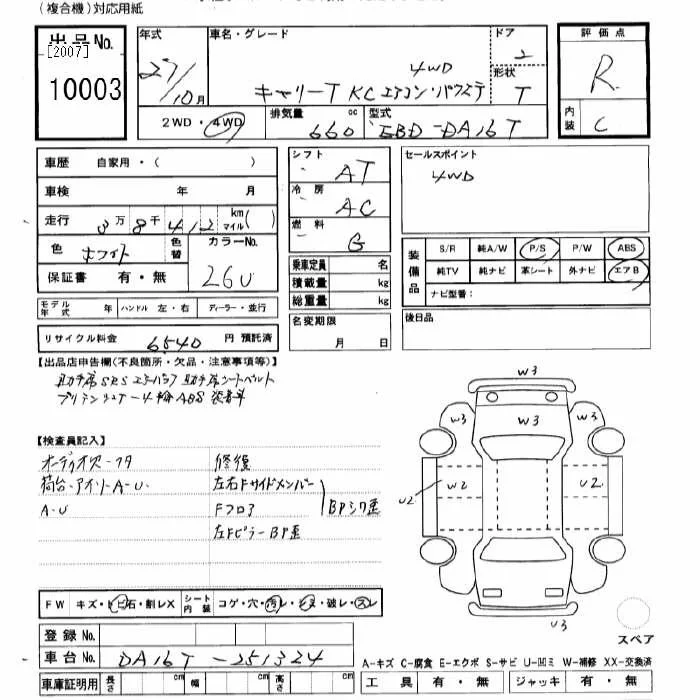 (複合機)対応用紙
出品No.
[2007]
10003
年式
27/10月
車名・グレード
4WD
キャリーT KCエアコン・パワステ
ドア
2
形状
T
評価点
R
内装
C
2WD・4WD
排気量
660 cc
型式
EBD-DA16T
車歴 自家用・( )
車検 年 月
走行 3万8千412 km マイル( )
色 ホワイト 色替
カラーNo.
26U
保証書 有・無
モデル年式 年 ハンドル 左・右 ディーラー・並行
リサイクル料金 6540 円 預託済
シフト
AT
冷房
AC
燃料
G
乗車定員 名
積載量 kg
総重量 kg
名変期限
月 日
セールスポイント
4WD
装備品
S/R 純A/W P/S P/W ABS
純TV 純ナビ 革シート 外ナビ エアB
ナビ型番:
後日品
【出品店申告欄(不良箇所・欠品・注意事項等)】
助手席SRSエアバッグ 助手席シートベルト
プリテンショナー 4輪ABS 装着車
【検査員記入】
オーディオス-フタ
荷台、アオリ-A-U.
A-U
修復
左右Fサイドメンバー
Fフロア
BPシワ歪
左Fピラー BP歪
W3
W3
W3
W3
U2
W2
U2
U3
スペア
FW キズ・トビ石・割レX シート内装 コゲ・穴・汚レ・シミ・破レ・スレ
登録No.
車台No. DA16T-251324
車庫証明用 長さ cm 幅 cm 高さ cm
A-キズ C-腐食 E-エクボ S-サビ U-凹ミ W-補修 XX-交換済
工具 有・無 ジャッキ 有・無